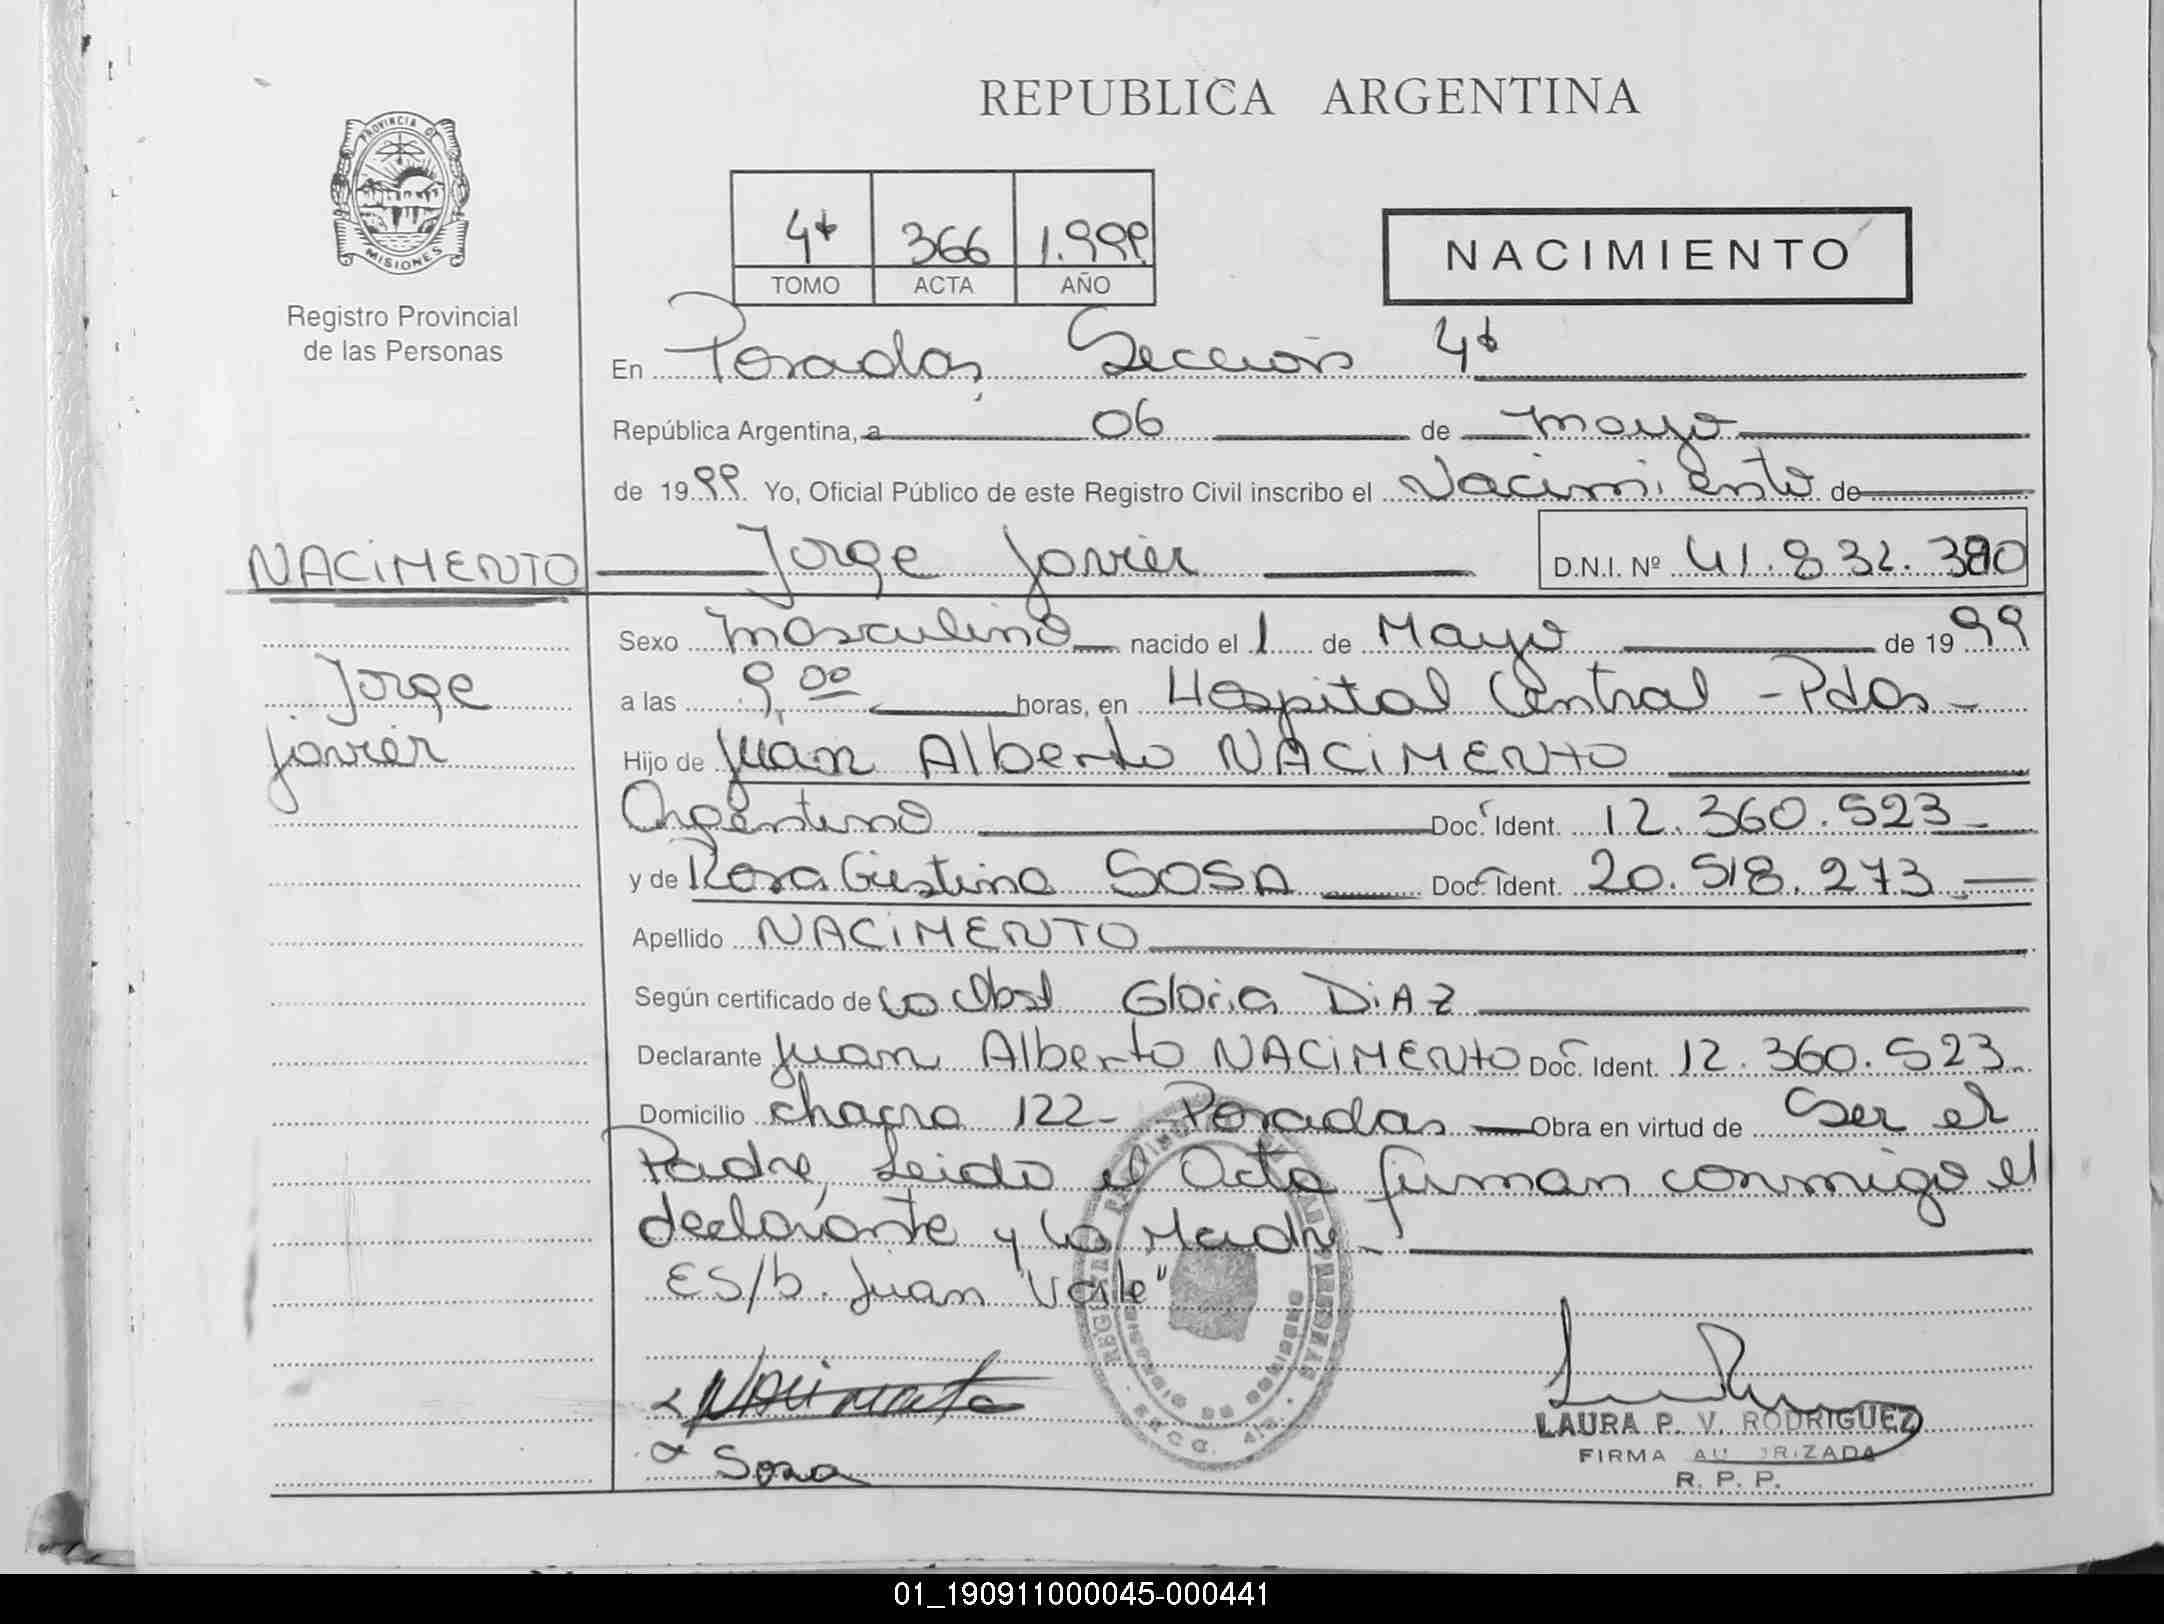 REPUBLICA ARGENTINA
PROVINCIA DE
MISIONES
Registro Provincial
de las Personas
4ª 366 1.999
TOMO ACTA AÑO
NACIMIENTO
En Posadas, Sección 4ª
República Argentina, a 06 de mayo
de 1999 Yo, Oficial Público de este Registro Civil inscribo el Nacimiento de
NACIMENTO
Jorge Javier D.N.I. Nº 41.832.380
Sexo Masculino nacido el 1 de Mayo de 1999
Jorge
Javier
a las 9,00 horas, en Hospital Central - Pdas -
Hijo de Juan Alberto NACIMENTO
Argentino Doc. Ident. 12.360.523
y de Rosa Cristina SOSA Doc. Ident. 20.518.273
Apellido NACIMENTO
Según certificado de la Obst Gloria DiAZ
Declarante Juan Alberto NACIMENTO Doc. Ident. 12.360.523
Domicilio chacra 122 - Posadas Obra en virtud de Ser el
Padre, Leido el Acta firman conmigo el
declarante y la Madre
ES/b. Juan "Vale"
Nacimento
Sosa
LAURA P. V. RODRIGUEZ
FIRMA AUTORIZADA
R. P. P.
01_190911000045-000441